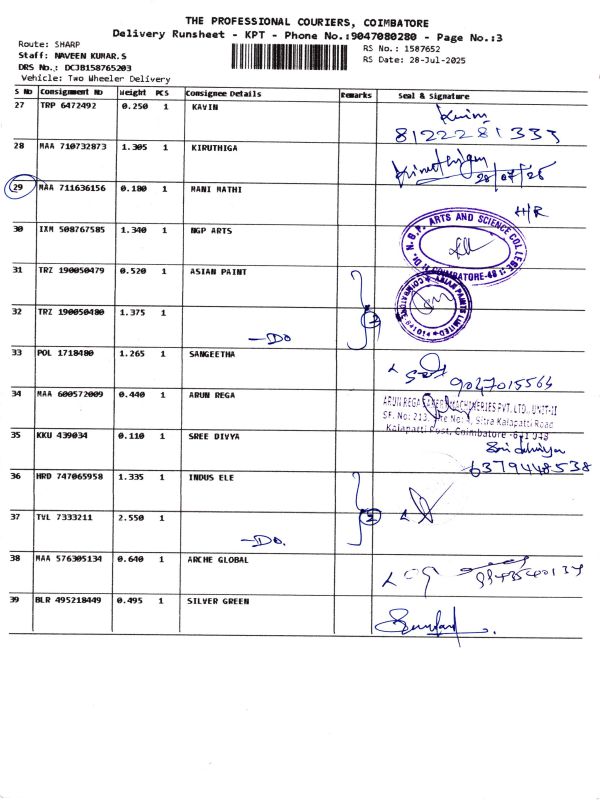 THE PROFESSIONAL COURIERS, COIMBATORE
Delivery Runsheet - KPT - Phone No.:9047080280 - Page No.:3
Route: SHARP
RS No.: 1587652
Staff: NAVEEN KUMAR.S
RS Date: 28-Jul-2025
DRS No.: DCJB158765203
Vehicle: Two Wheeler Delivery
S No Consignment No Weight PCS Consignee Details Remarks Seal & Signature
27 TRP 6472492 0.250 1 KAVIN
8122281333
28 MAA 710732873 1.305 1 KIRUTHIGA
28/07/25
29 MAA 711636156 0.180 1 MANI MATHI
H/R
30 IXM 508767585 1.340 1 NGP ARTS
Dr. N.G.P. ARTS AND SCIENCE COLLEGE
COIMBATORE-48
31 TRZ 190050479 0.520 1 ASIAN PAINT
ASIAN PAINTS LIMITED
COIMBATORE
32 TRZ 190050480 1.375 1
-DO
33 POL 1718480 1.265 1 SANGEETHA
9047015564
34 MAA 600572009 0.440 1 ARUN REGA
ARUN REGA MACHINERIES PVT. LTD., UNIT-II
SF. No: 213, Site No: 4, Sitra Kalapatti Road
Kalapatti Post, Coimbatore - 641 048
35 KKU 439034 0.110 1 SREE DIVYA
6379448538
36 HRD 747065958 1.335 1 INDUS ELE
2
37 TVL 7333211 2.550 1
-DO.
38 MAA 576305134 0.640 1 ARCHE GLOBAL
39 BLR 495218449 0.495 1 SILVER GREEN